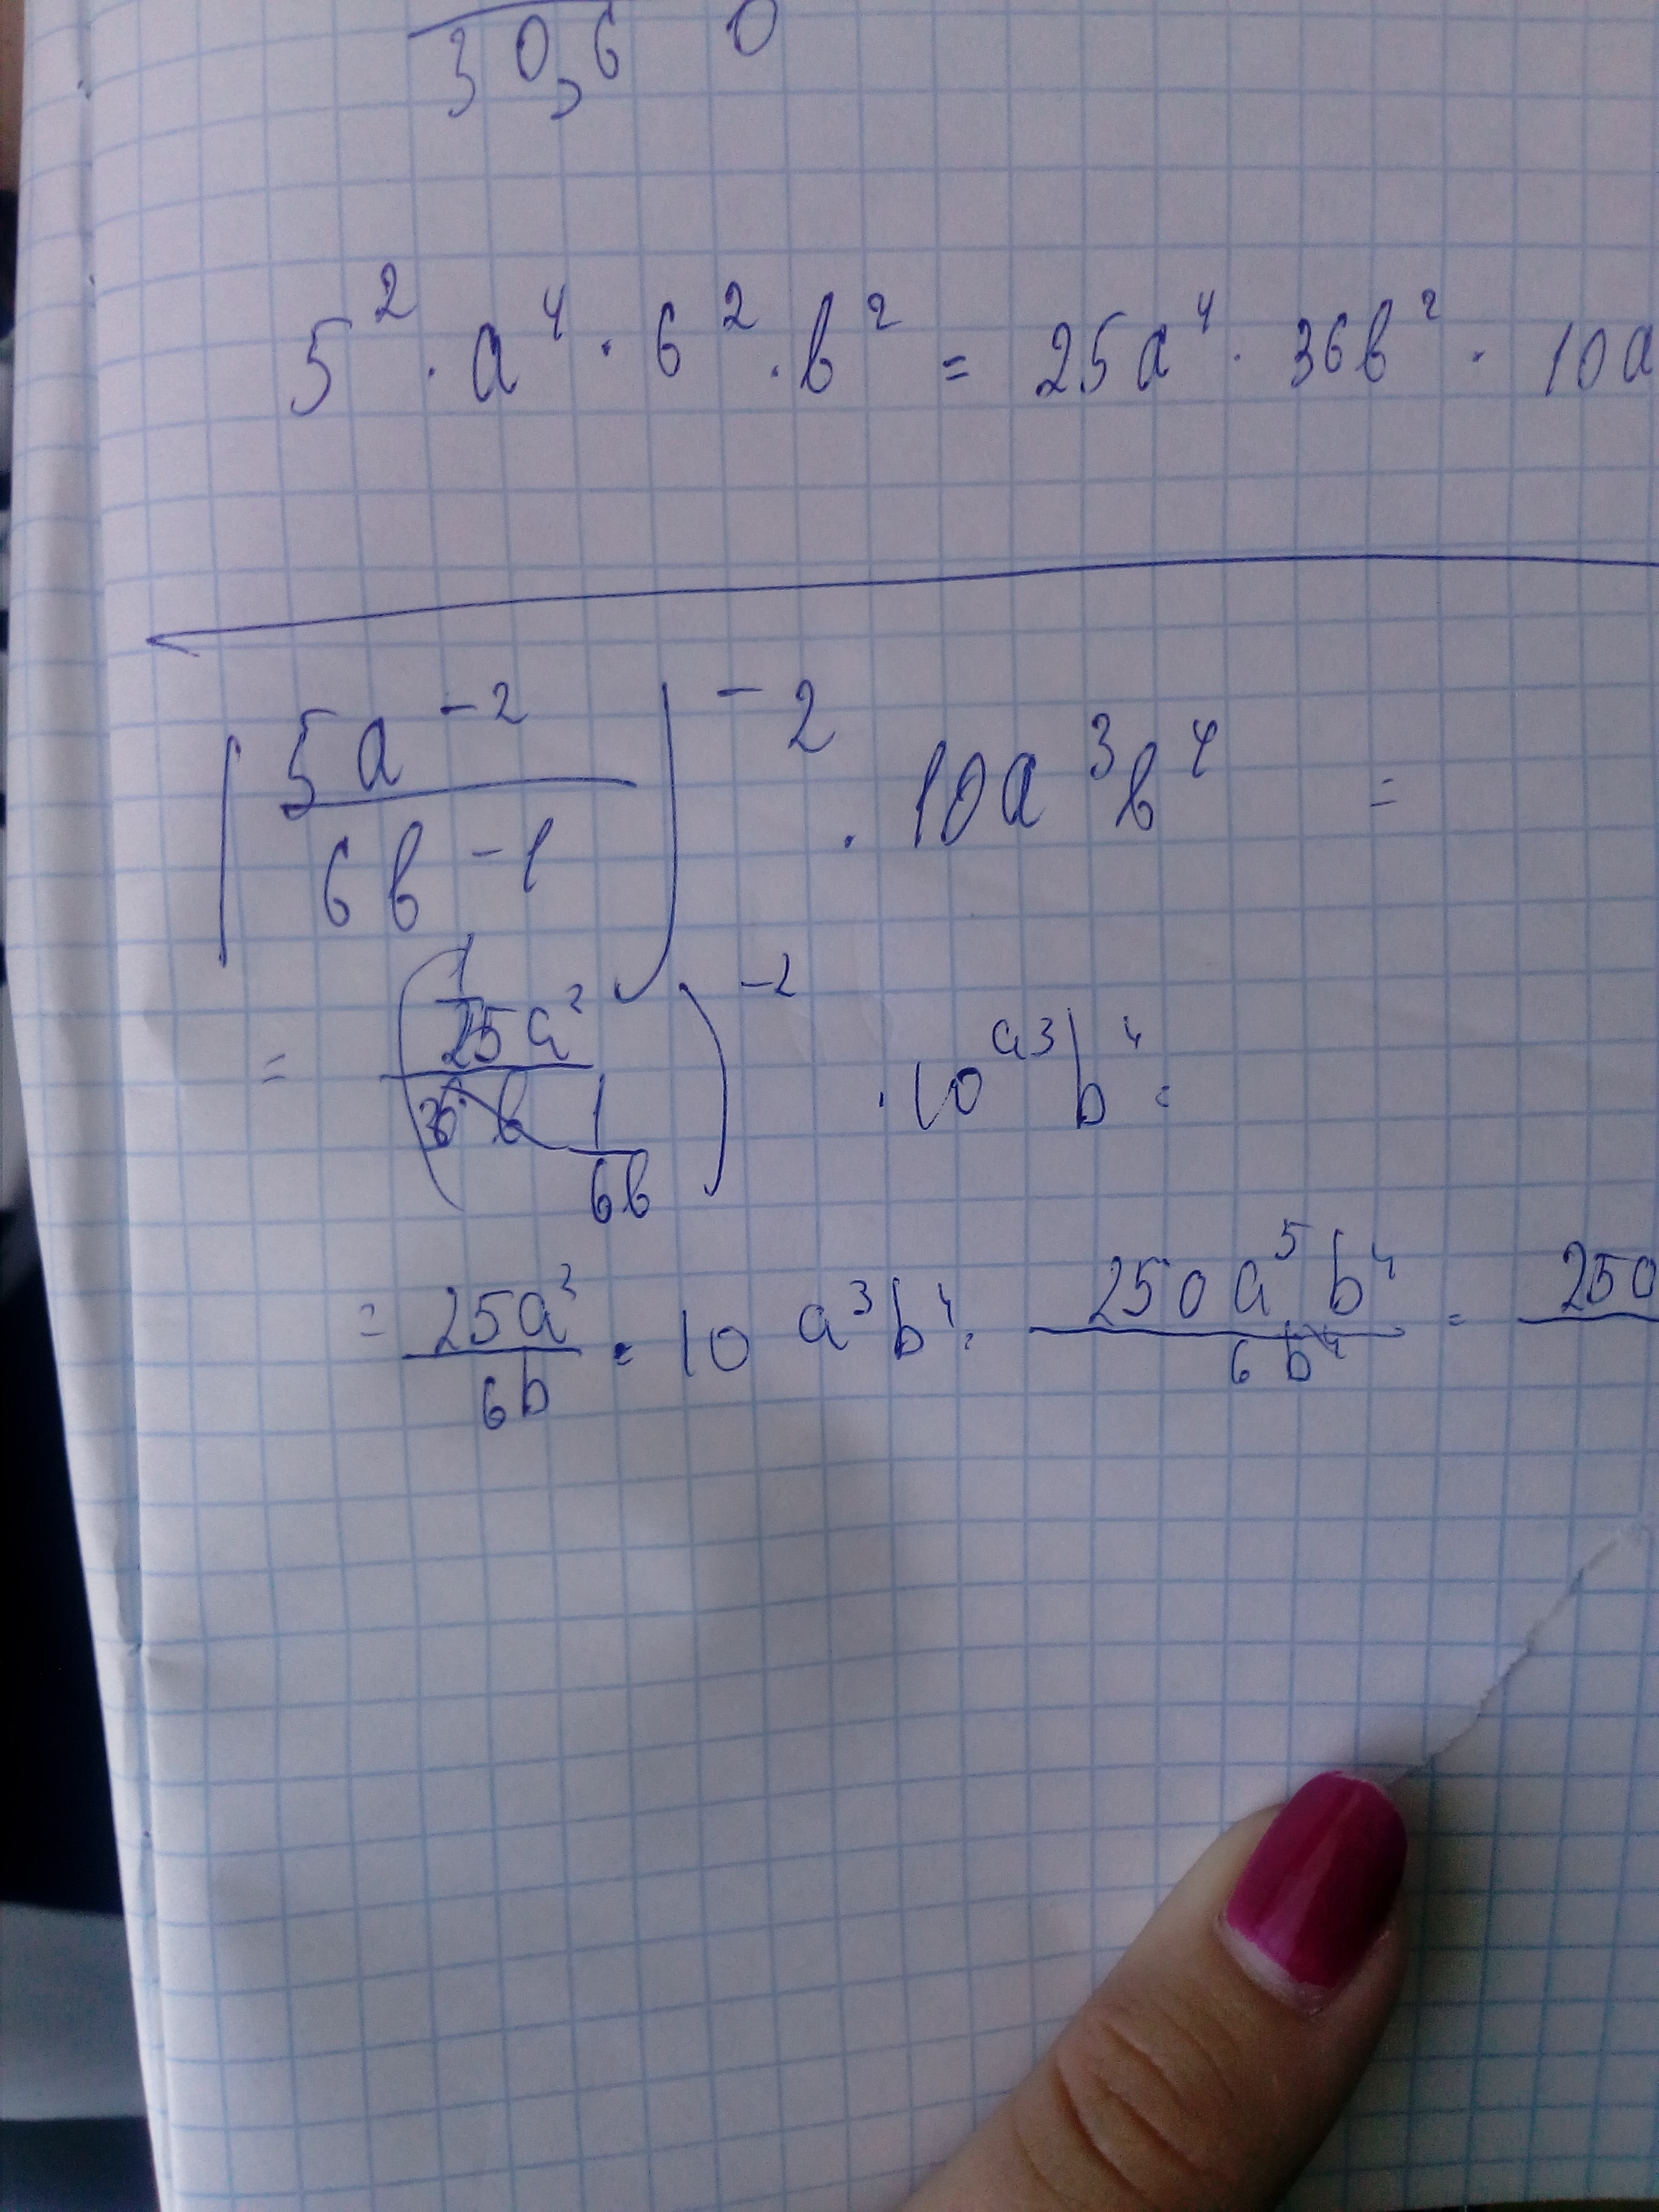 30,6 0
5² · a⁴ · 6² · b² = 25a⁴ · 36b² · 10a
(5a⁻² / 6b⁻¹)⁻² · 10a³b⁴ =
= (1/25a² / 1/6b)⁻² · 10a³b⁴ =
= 25a²/6b · 10a³b⁴ = 250a⁵b⁴/6b = 250